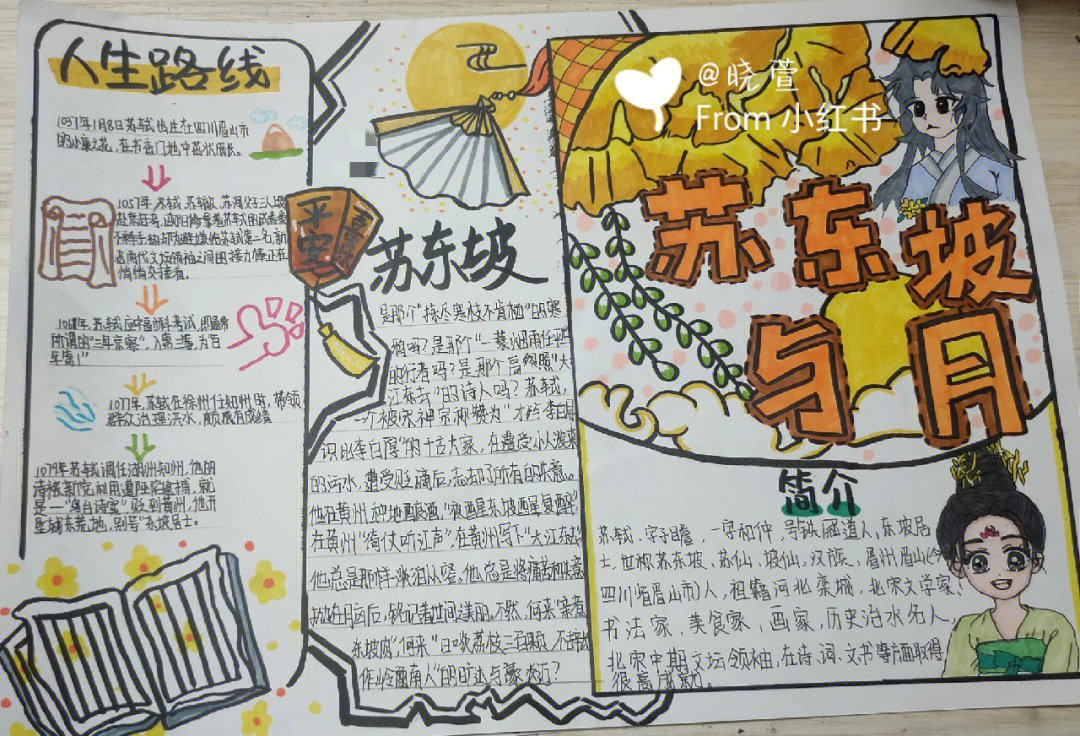 人生路线
1037年1月8日苏轼出生在四川眉山市
的小康之花，在书香门地中茁壮成长。
1057年，苏轼、苏辙、苏洵父子三人
赴京赶考，
名两代文坛领袖之间的接力像正在
悄悄交接着。
苏轼应中制科考试，即通常
所谓的"三年京察"，入第三等，为百
年第1"
1077年，苏轼在徐州任知州时，带领
群众治理洪水，颇成有成绩
1079年苏轼调任湖州知州，他的
诗被新党利用遭陷害逮捕，就
是一"乌台诗案"贬到黄州，他开
垦城东荒地，别号"东坡居士。
平安
苏东坡
是那个"拣尽寒枝不肯栖"的寒
鸦吗？是那个"一蓑烟雨任平生
的行者吗？是那个高唱"大
江东去"的诗人吗？苏轼，
一个被宋神宗称赞为"才与李白同
识比李白厚"的千古大家，在遭受小人泼来
的污水，遭受贬谪后，忘却了所有的失意。
他在黄州，种地酿酒，"夜饮东坡醒复醉"
在黄州"倚仗听江声"在黄州写下"大江东去"
他总是那样淡泊从容，他总是将痛苦和失意
抛在月亮后，铭记着世间美丽，不然，何来"
东坡肉"，何来"日啖荔枝三百颗，不辞长
作岭南人"的旷达与豪迈？
@晓萱
From 小红书
苏东坡
与月
简介
苏轼，字子瞻，一字和仲，号铁冠道人、东坡居
士，世称苏东坡、苏仙、坡仙，汉族，眉州眉山（今
四川省眉山市）人，祖籍河北栾城，北宋文学家、
书法家、美食家，画家，历史治水名人，
北宋中期文坛领袖，在诗、词、文书等方面取得
很高成就。